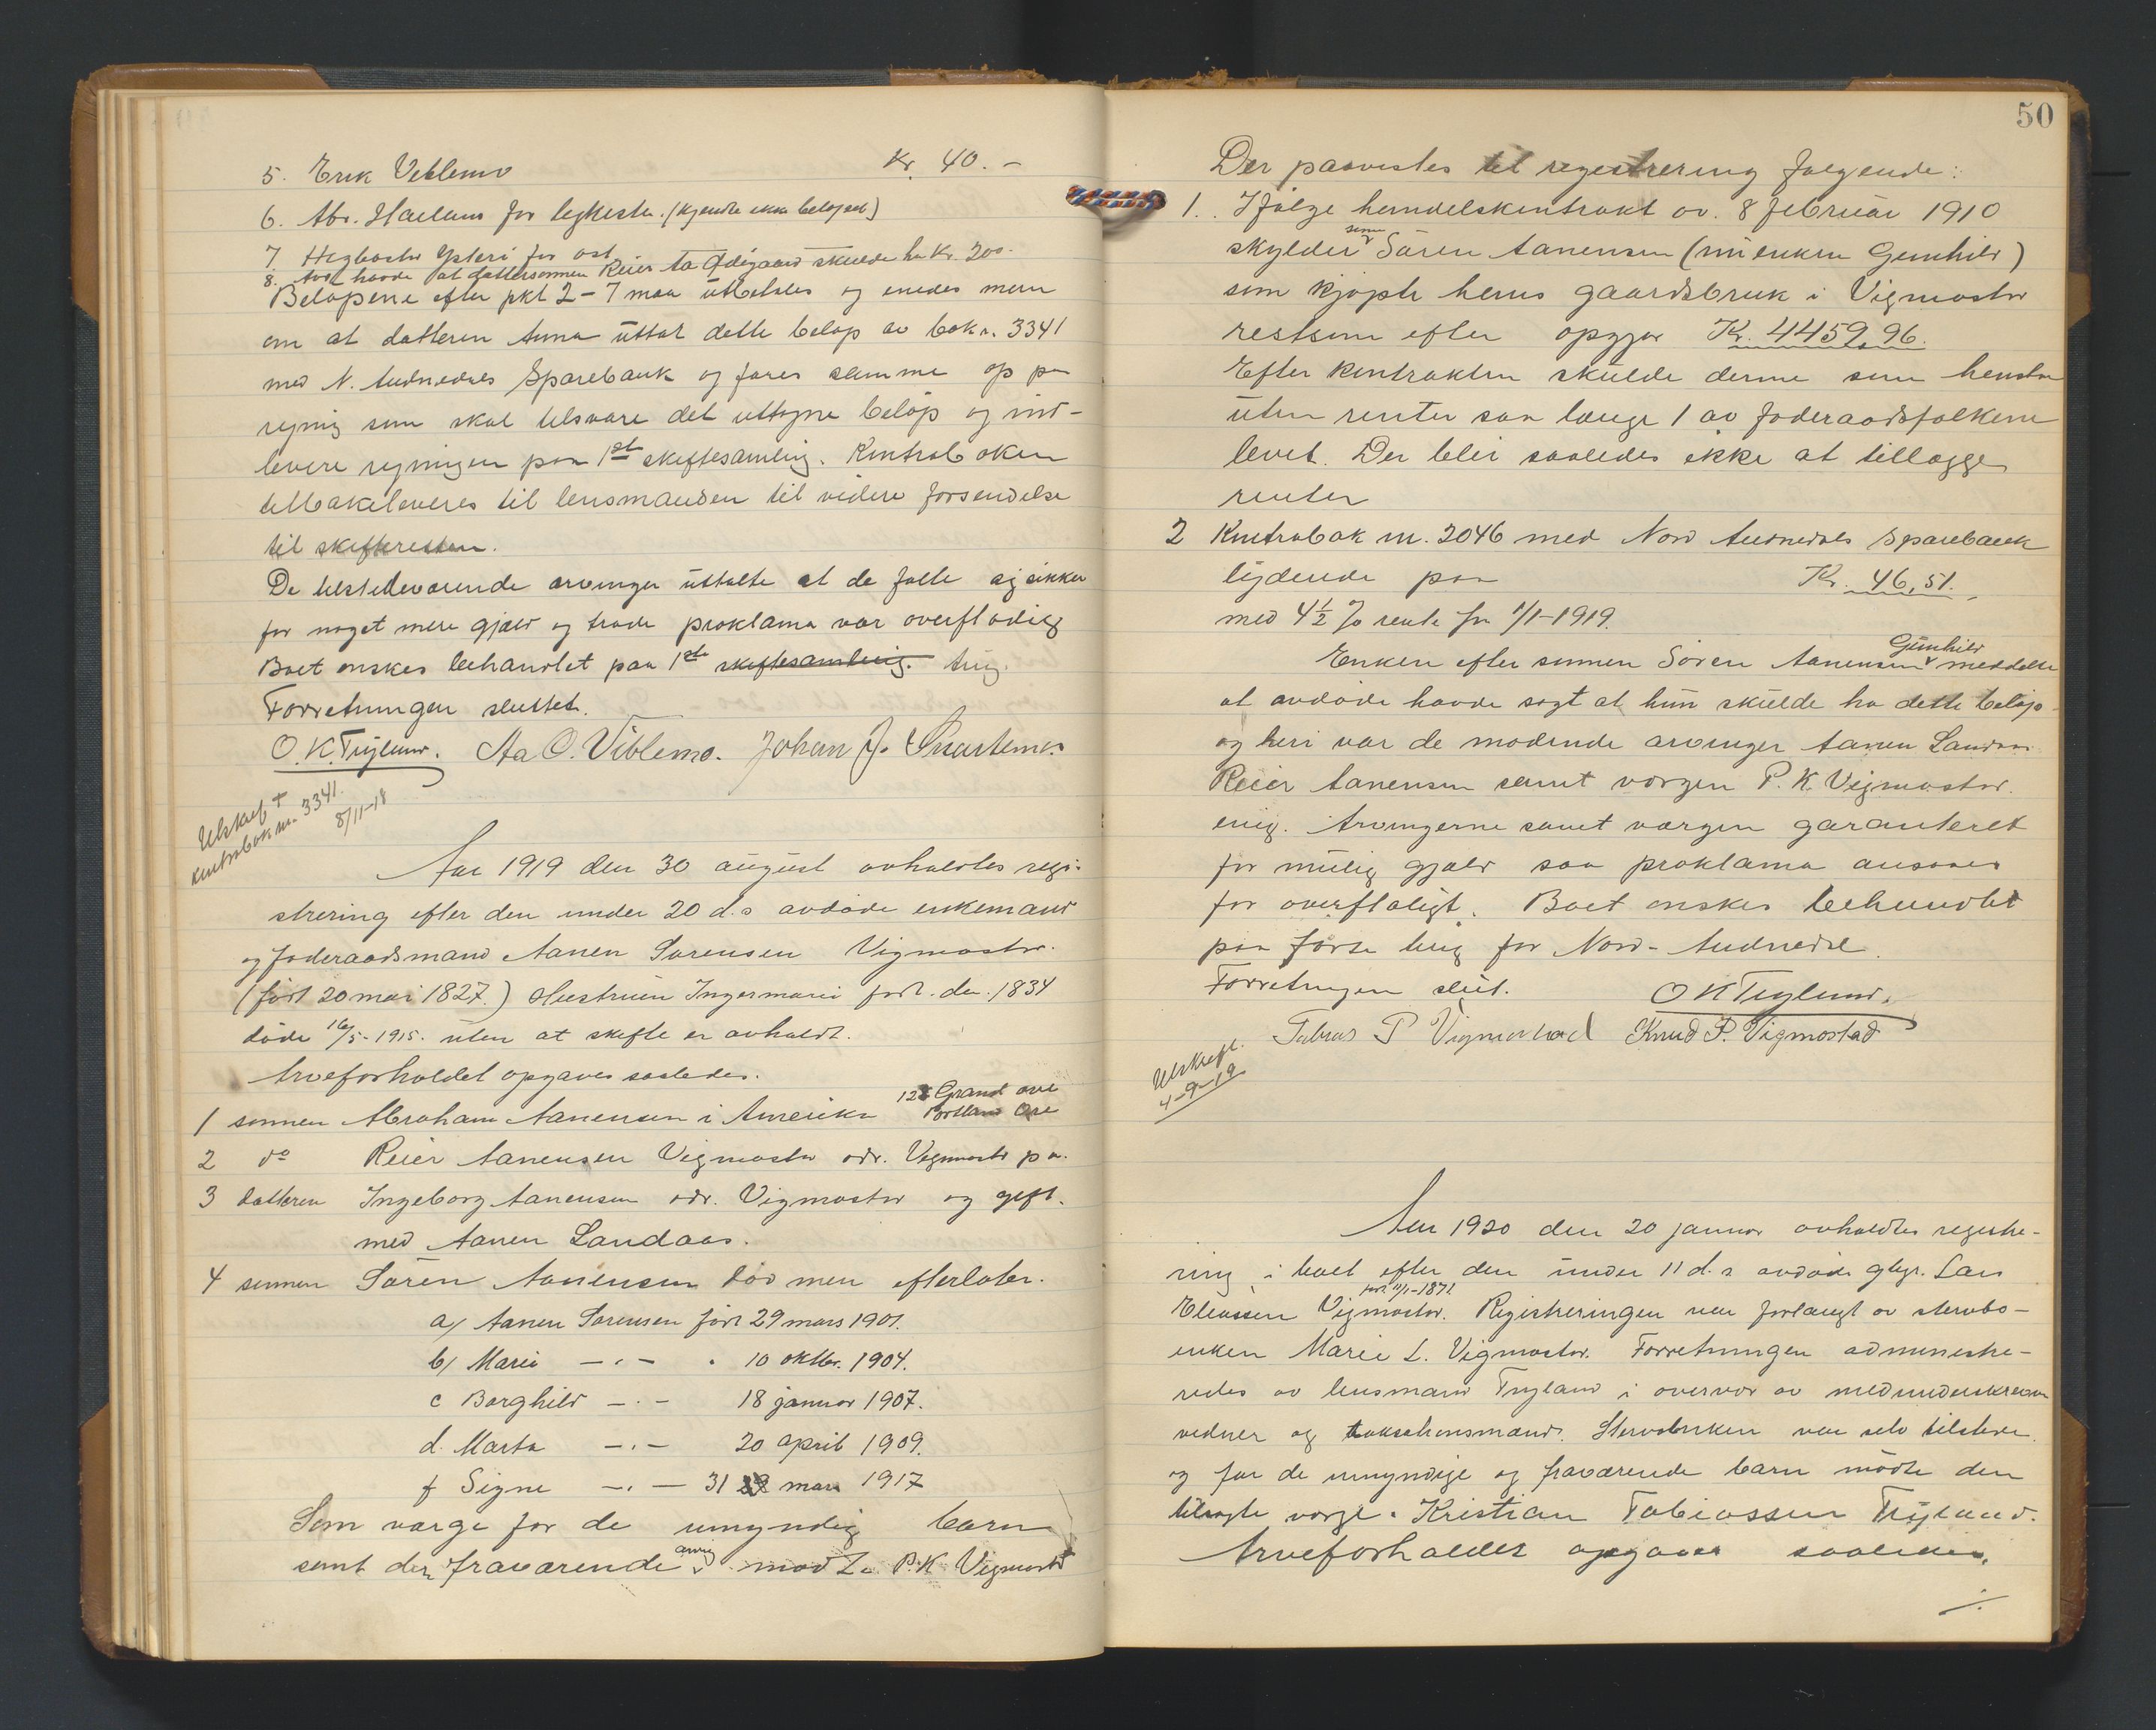 5. Erik Veblemo Kr. 40.-
6. Abr. Haeland for ligkiste. (kjendte ikke beløpet)
7. Hægbostad Ysteri for ost
8. Avd. havde at dattersønnen Reier Aa Ødegaard skulde ha Kr. 200.
Beløpene efter pkt 2-7 maa utbetales og enedes men
om at datteren Anna uttar dette beløp av bok n. 3341
med N. Audnedals Sparebank og fører samme op paa
regning som skal tilsvare det uttagne beløp og ind-
levere regningen paa 1ste skiftesamling. Kontraboken
tilbakeleveres til lensmanden til videre forsendelse
til skifteretten.
De tilstedeværende arvinger uttalte at de følte sig sikker
for noget mere gjæld og trode proklama var overflødig
Boet ønskes behandlet paa 1ste skiftesamling. ting.
Forretningen sluttet.
O. K. Trygland. Aa O. Viblemo. Johan J. Snartemo.
Utskrift +
kontrabok nr. 3341.
8/11-18
Aar 1919 den 30 august avholdtes regi-
strering efter den under 20 d.s avdøde enkemand
og føderaadsmand Aanen Sørensen Vigmostad.
(født 20 mai 1827.) Hustruen Ingermarie født. den. 1834
døde 16/5-1915. uten at skifte er avholdt.
Arveforholdet opgaves saaledes.
1 sønnen Abraham Aanensen i Amerika Grand ave
Portland Ore
2 do Reier Aanensen Vigmostad adr. Vigmostad pa.
3 datteren Ingeborg Aanensen adr. Vigmostad og gift.
med Aanen Landaas.
4 sønnen Søren Aanensen død men efterlater.
a/ Aanen Sørensen født 29 mars 1901.
b/ Marie -"- " 10 oktbr. 1904.
c Borghild -"- 18 januar 1907.
d. Marta -"- 20 april 1909.
f Signe -"- 31 mars 1917
Som værge for de umyndig børn
samt den fraværende arving mødte P. K Vigmostad
50
Der paavistes til registrering følgende:
1. Ifølge handelskontrakt av. 8 februar 1910
skylder sønn Søren Aanensen (nu enken Gunhild)
som kjøpte hans gaardsbruk i Vigmostad
restsum efter opgjør Kr. 4459,96.
Efter kontrakten skulde denne sum henstaa
uten renter saa længe 1 av føderaadsfolkene
levet. Der blir saaledes ikke at tillægge
renter
2 Kontrabok nr. 2046 med Nord Audnedals Sparebank
lydende paa Kr. 46,51.
med 4 1/2 % rente fra 1/1-1919.
Enken efter sønnen Søren Aanensen Gunhild meddelte
at avdøde havde sagt at hun skulde ha dette beløp
og heri var de mødende arvinger Aanen Landaas
Reier Aanensen samt værgen P. K. Vigmostad.
enig. Arvingerne samt værgen garanteret
for mulig gjæld saa proklama ansaaes
for overflødigt. Boet ønskes behandlet
paa første ting for Nord-Audnedal.
Forretningen slut. O K Trygland.
Tobias P Vigmostad Knud P. Vigmostad
Utskrift.
4-9-19
Aar 1920 den 20 januar avholdtes registre-
ring i boet efter den under 11 d.s avdøde gbr. Lars
Eliassen Vigmostad. født 11/1-1871. Registreringen var forlangt av stervbo-
enken Marie L. Vigmostad. Forretningen administre-
redes av lensmand Trygland i overvær av medunderskrevne
vidner og takstmænd. Stervboenken var selv tilstede.
og for de umyndige og fraværende barn mødte den
tilsagte værge. Kristian Tobiassen Trygland.
Arveforholdet opgaves saaledes.
./.